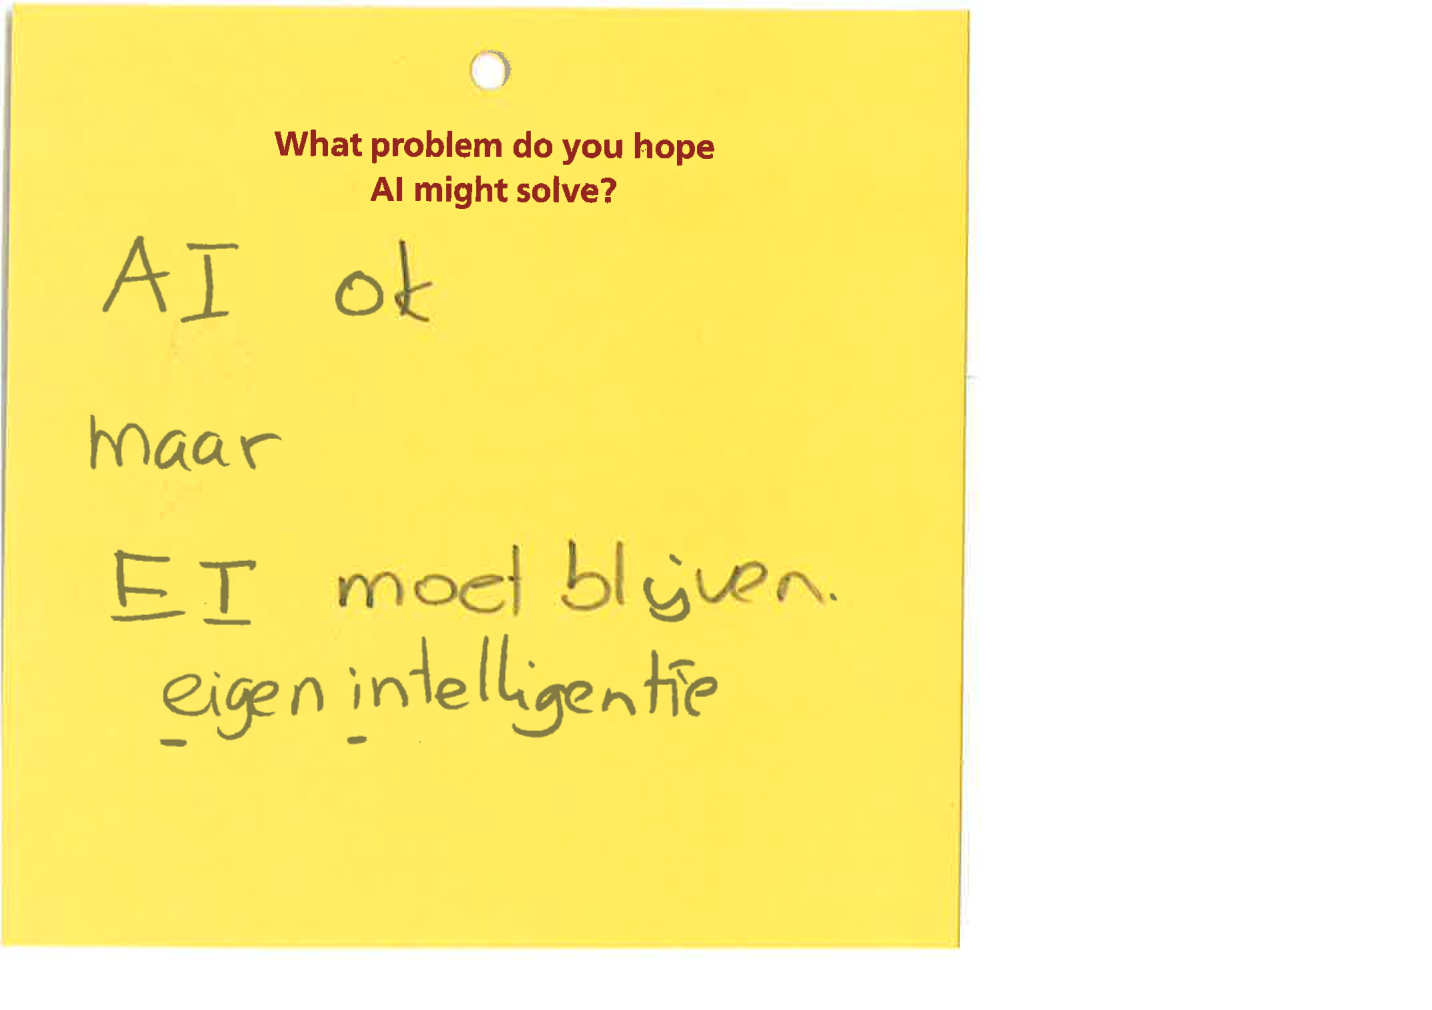 What problem do you hope
AI might solve?
AI ok
maar
EI moet blijven.
eigen intelligentie